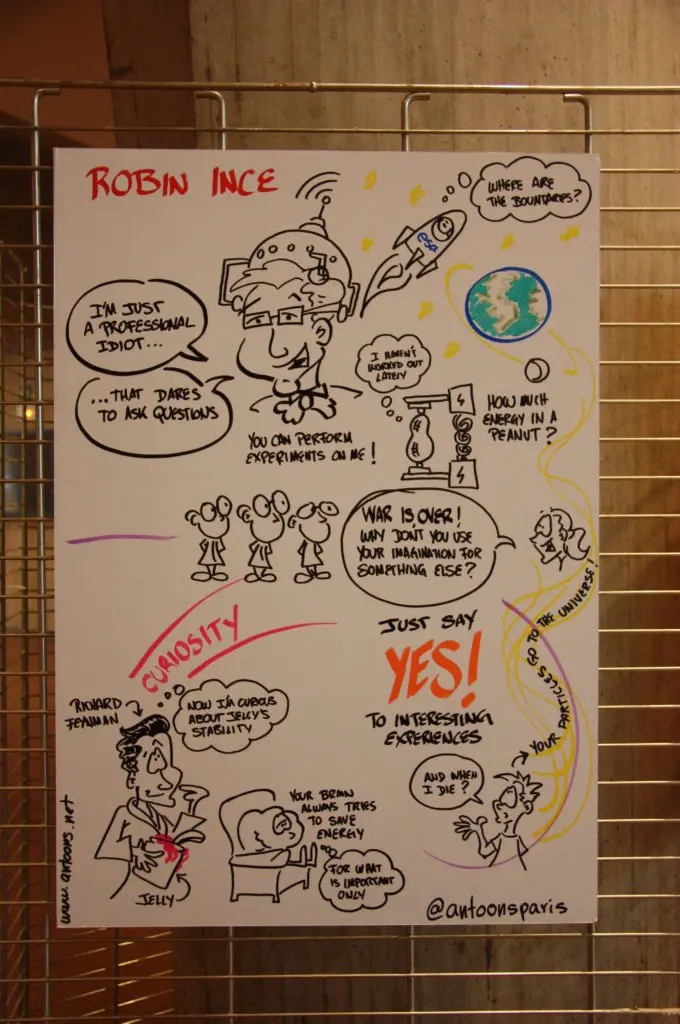 ROBIN INCE
WHERE ARE
THE BOUNTARIES?
esa
I'M JUST
A PROFESSIONAL
IDIOT...
...THAT DARES
TO ASK QUESTIONS
I HAVEN'T
WORKED OUT
LATELY
YOU CAN PERFORM
EXPERIMENTS ON ME!
HOW MUCH
ENERGY IN A
PEANUT?
WAR IS OVER!
WHY DON'T YOU USE
YOUR IMAGINATION FOR
SOMETHING ELSE?
CURIOSITY
JUST SAY
YES!
TO INTERESTING
EXPERIENCES
YOUR PARTICLES GO TO THE UNIVERSE!
RICHARD
FEYNMAN
NOW I'M CURIOUS
ABOUT JELLY'S
STABILITY
JELLY
YOUR BRAIN
ALWAYS TRIES
TO SAVE
ENERGY
FOR WHAT
IS IMPORTANT
ONLY
AND WHEN
I DIE?
www.antoons.net
@antoonsparis